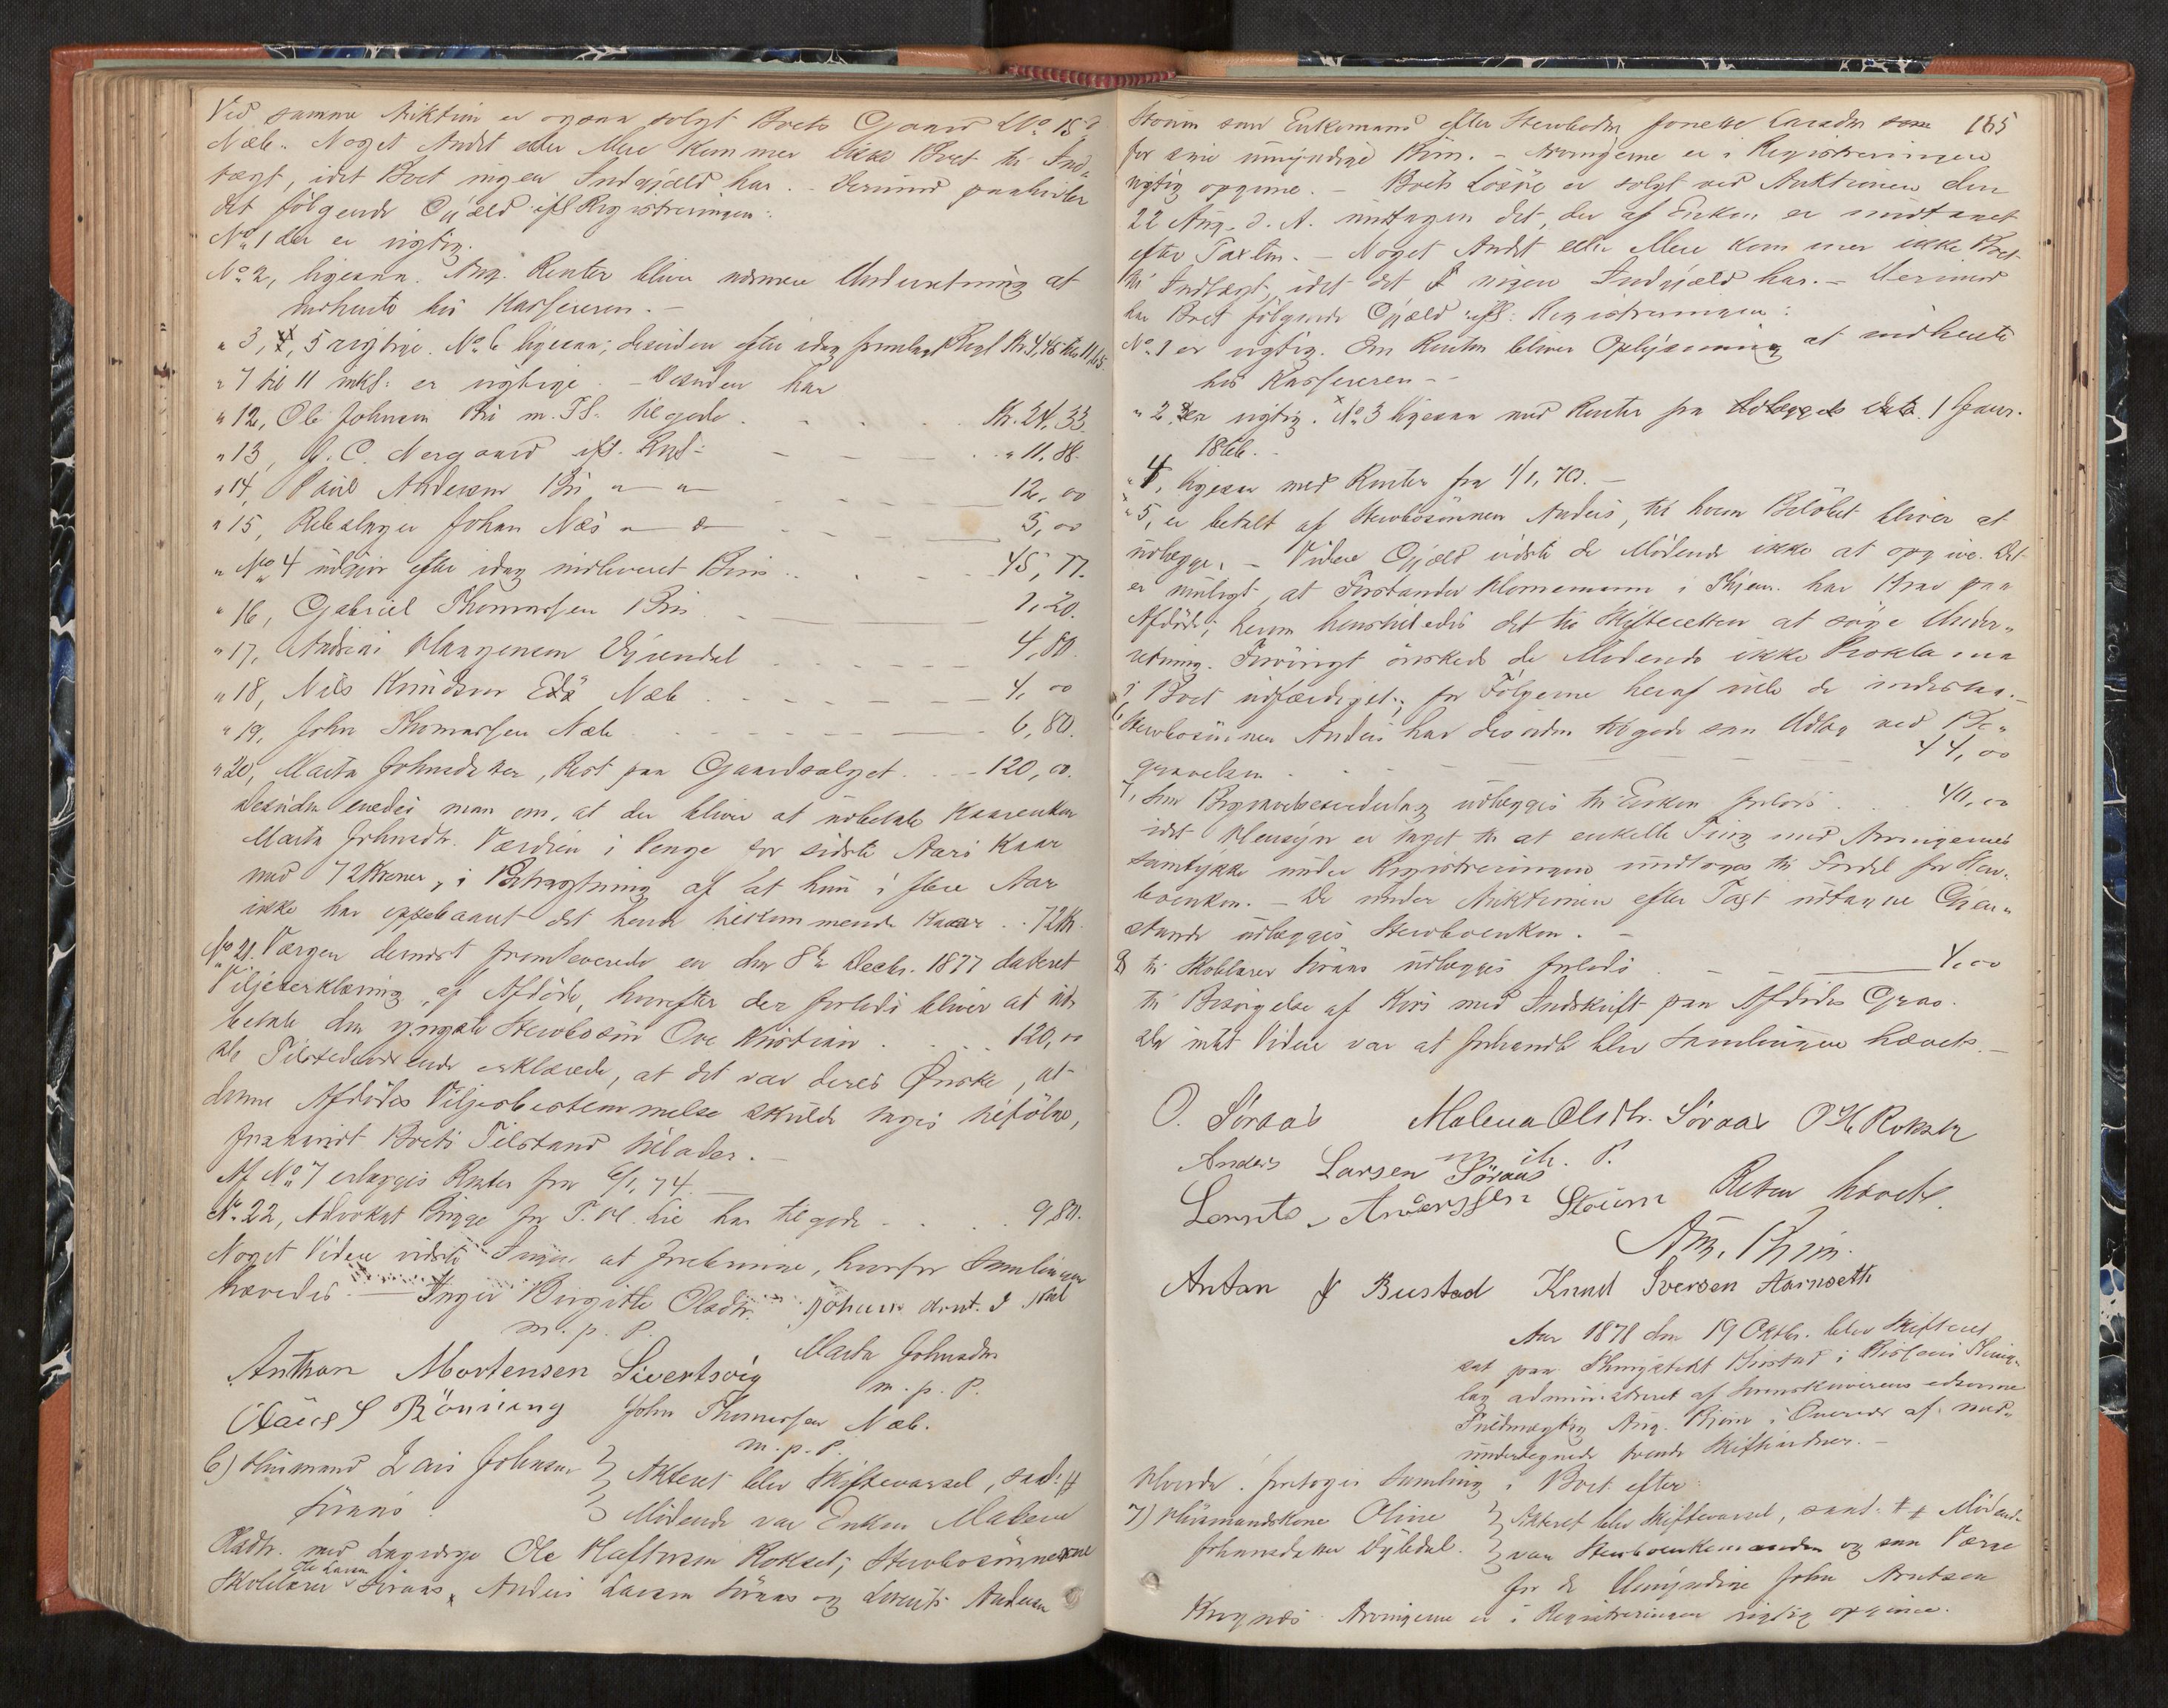 Ved samme Auktion er ogsaa solgt Boets Gaard No 15 d
Næb. Noget Andet eller Mere kommer ikke Boet til Ind-
tægt, idet Boet ingen Indgjæld har. - Derimod paahviler
det følgende Gjæld ifl Registreringen:
No 1 der er rigtig.
No 2, ligesaa. Ang. Renter bliver nærmere Underretning at
indhente hos Kassereren. -
" 3, 4, 5 rigtige. No 6 ligesaa; desuden efter idag fremlagt Regl Kr. 4,48
" 7 til 11 inkl: er rigtige - Desuden har
" 12, Ole Johnsen Bri m. Fl. tilgode Kr. 24,33
" 13, J. C. Nergaard ifl. Regl: " 11,88.
" 14, Paul Andersen Bri " " 12,00
" 15, Rebslager Johan Næs " " 5,00
" No 4 udgjør efter idag indleveret Bevis 45,77.
" 16, Gabriel Thomassen Bris 1,20.
" 17, Andreas Haagensen 4,80.
" 18, Nils Knudsen Edø Næb 4,00
" 19, John Thomassen Næb 6,80.
" 20, Marta Johnsdatter, Rest paa Gaardsalget. 120,00.
Desuden enedes man om, at der bliver at udbetale Kaarenken
Marta Johnsdtr. Værdien i Penge for sidste Aars Kaar
med 72 Kroner, i Betragtning af at hun i flere Aar
ikke har oppebaaret det hende tilkommende Kaar . . 72 K.
No 21. Værgen dernæst fremleverede en den 8de Decbr. 1877 dateret
Viljeserklæring af Afdøde, hvorefter der forlods bliver at ud-
betale den yngste Stervbosøn Ove Kristian 120,00
de Tilstedeværende erklærede, at det var deres Ønske, at
denne Afdødes Viljesbestemmelse skulde tages tilfølge,
forsaavidt Boets Tilstand tillader. -
Af No 7 erlægges Renter fra 6/1, 74.
No 22, Advokat Bugge for P. M. Lie har tilgode 9,80.
Noget Videre vidste Ingen at forebringe, hvorfor Samlingen
hævedes. - Inger Birgitte Olsdtr. Johan Arnt. J
m. p. P. Marta Johnsdtr
Anthon Mortensen Sivertsvig m. p. P.
Claus S Rönning John Thomassen Næb.
m. p. P.
6) Husmand Lars Johnsen } Akteret blev Skiftevarsel, saal: #
Söraas } Mødende var Enken Malena
Olsdtr. med Lagværge Ole Haftorsen Rokset; Stervbosønnerne
Skolelærer Ole Larsen Söraas, Anders Larsen Söraas og Lorents Andersen
165
Stöum som Enkemand efter Stervbodtr Jonette Larsdtr som
for sine umyndige Börn. - Arvingerne er i Registreringen
rigtig opgivne. - Boets Løsøre er solgt ved Auktionen den
22 Aug. d. A. undtagen det, der af Enken er udtaget
efter Taxten. - Noget Andet eller Mere kommer ikke Boet
til Indtægt, idet det ingen Indgjæld har. - Derimod
har Boet følgende Gjæld ifl: Registreringen:
No 1 er rigtig. Om Renten bliver Oplysning at indhente
hos Kassereren. -
" 2 er rigtig. No 3 ligesaa med Renter fra 1 Januar.
1866. -
" 4, ligesaa med Renter fra 1/1, 70. -
" 5, er betalt af Stervbosønnen Anders, til hvem Beløbet bliver at
udlægge. - Videre Gjæld vidste de Mødende ikke at opgive. Det
er muligt, at Forstander Hornemann i Thjem. har Krav paa
Afdøde; herom henstilledes det til Skifteretten at søge Under-
retning. Forøvrigt ønskede de Mødende ikke Proklama
i Boet udfærdiget; for Følgerne heraf vilde de indestaa.
6, Stervbosønnen Anders har desuden tilgode som Udlæg ved Be-
gravelsen 44,00
7, som Begravelsesvederlag udlægges til Enken forlods 40,00
idet Hensyn er taget til at enkelte Ting med Arvingernes
Samtykke under Registreringen undtoges til Fordel for Ster-
boenken. - De under Auktionen efter Taxt udtagne Gjen-
stande udlægges Stervboenken. -
8 til Skolelærer Söraas udlægges forlods 4,00
til Besørgelse af Kors med Indskrift paa Afdødes Grav.
Da intet Videre var at forhandle blev Samlingen hævet. -
O. Søraas Malena Olsdtr. Söraas O H Rokset
m ih. P.
Anders Larsen Söraas
Lornts Anderssen Stöum Retten hævet.
Aug. Bjim.
Anton J Bustad Knud Iversen Aarnseth
Aar 1878 den 19 Oktbr. blev Skifteret
sat paa Thingstedet Bustad i Thing-
lag administreret af Sorenskriverens edsvorne
Fuldmægtig Aug. i Overvær af med-
undertegnede tvende Skiftevidner. -
Hvorda foretoges Samling i Boet efter:
7) Husmandskone Oline } Akteret blev Skiftevarsel, saal: # # Mødende
Johannesdatter Dybdal. } var Stervboenkemanden og som Værge
for de Umyndige John Arntsen
Krognæs Arvingerne er i Registreringen rigtig opgivne.